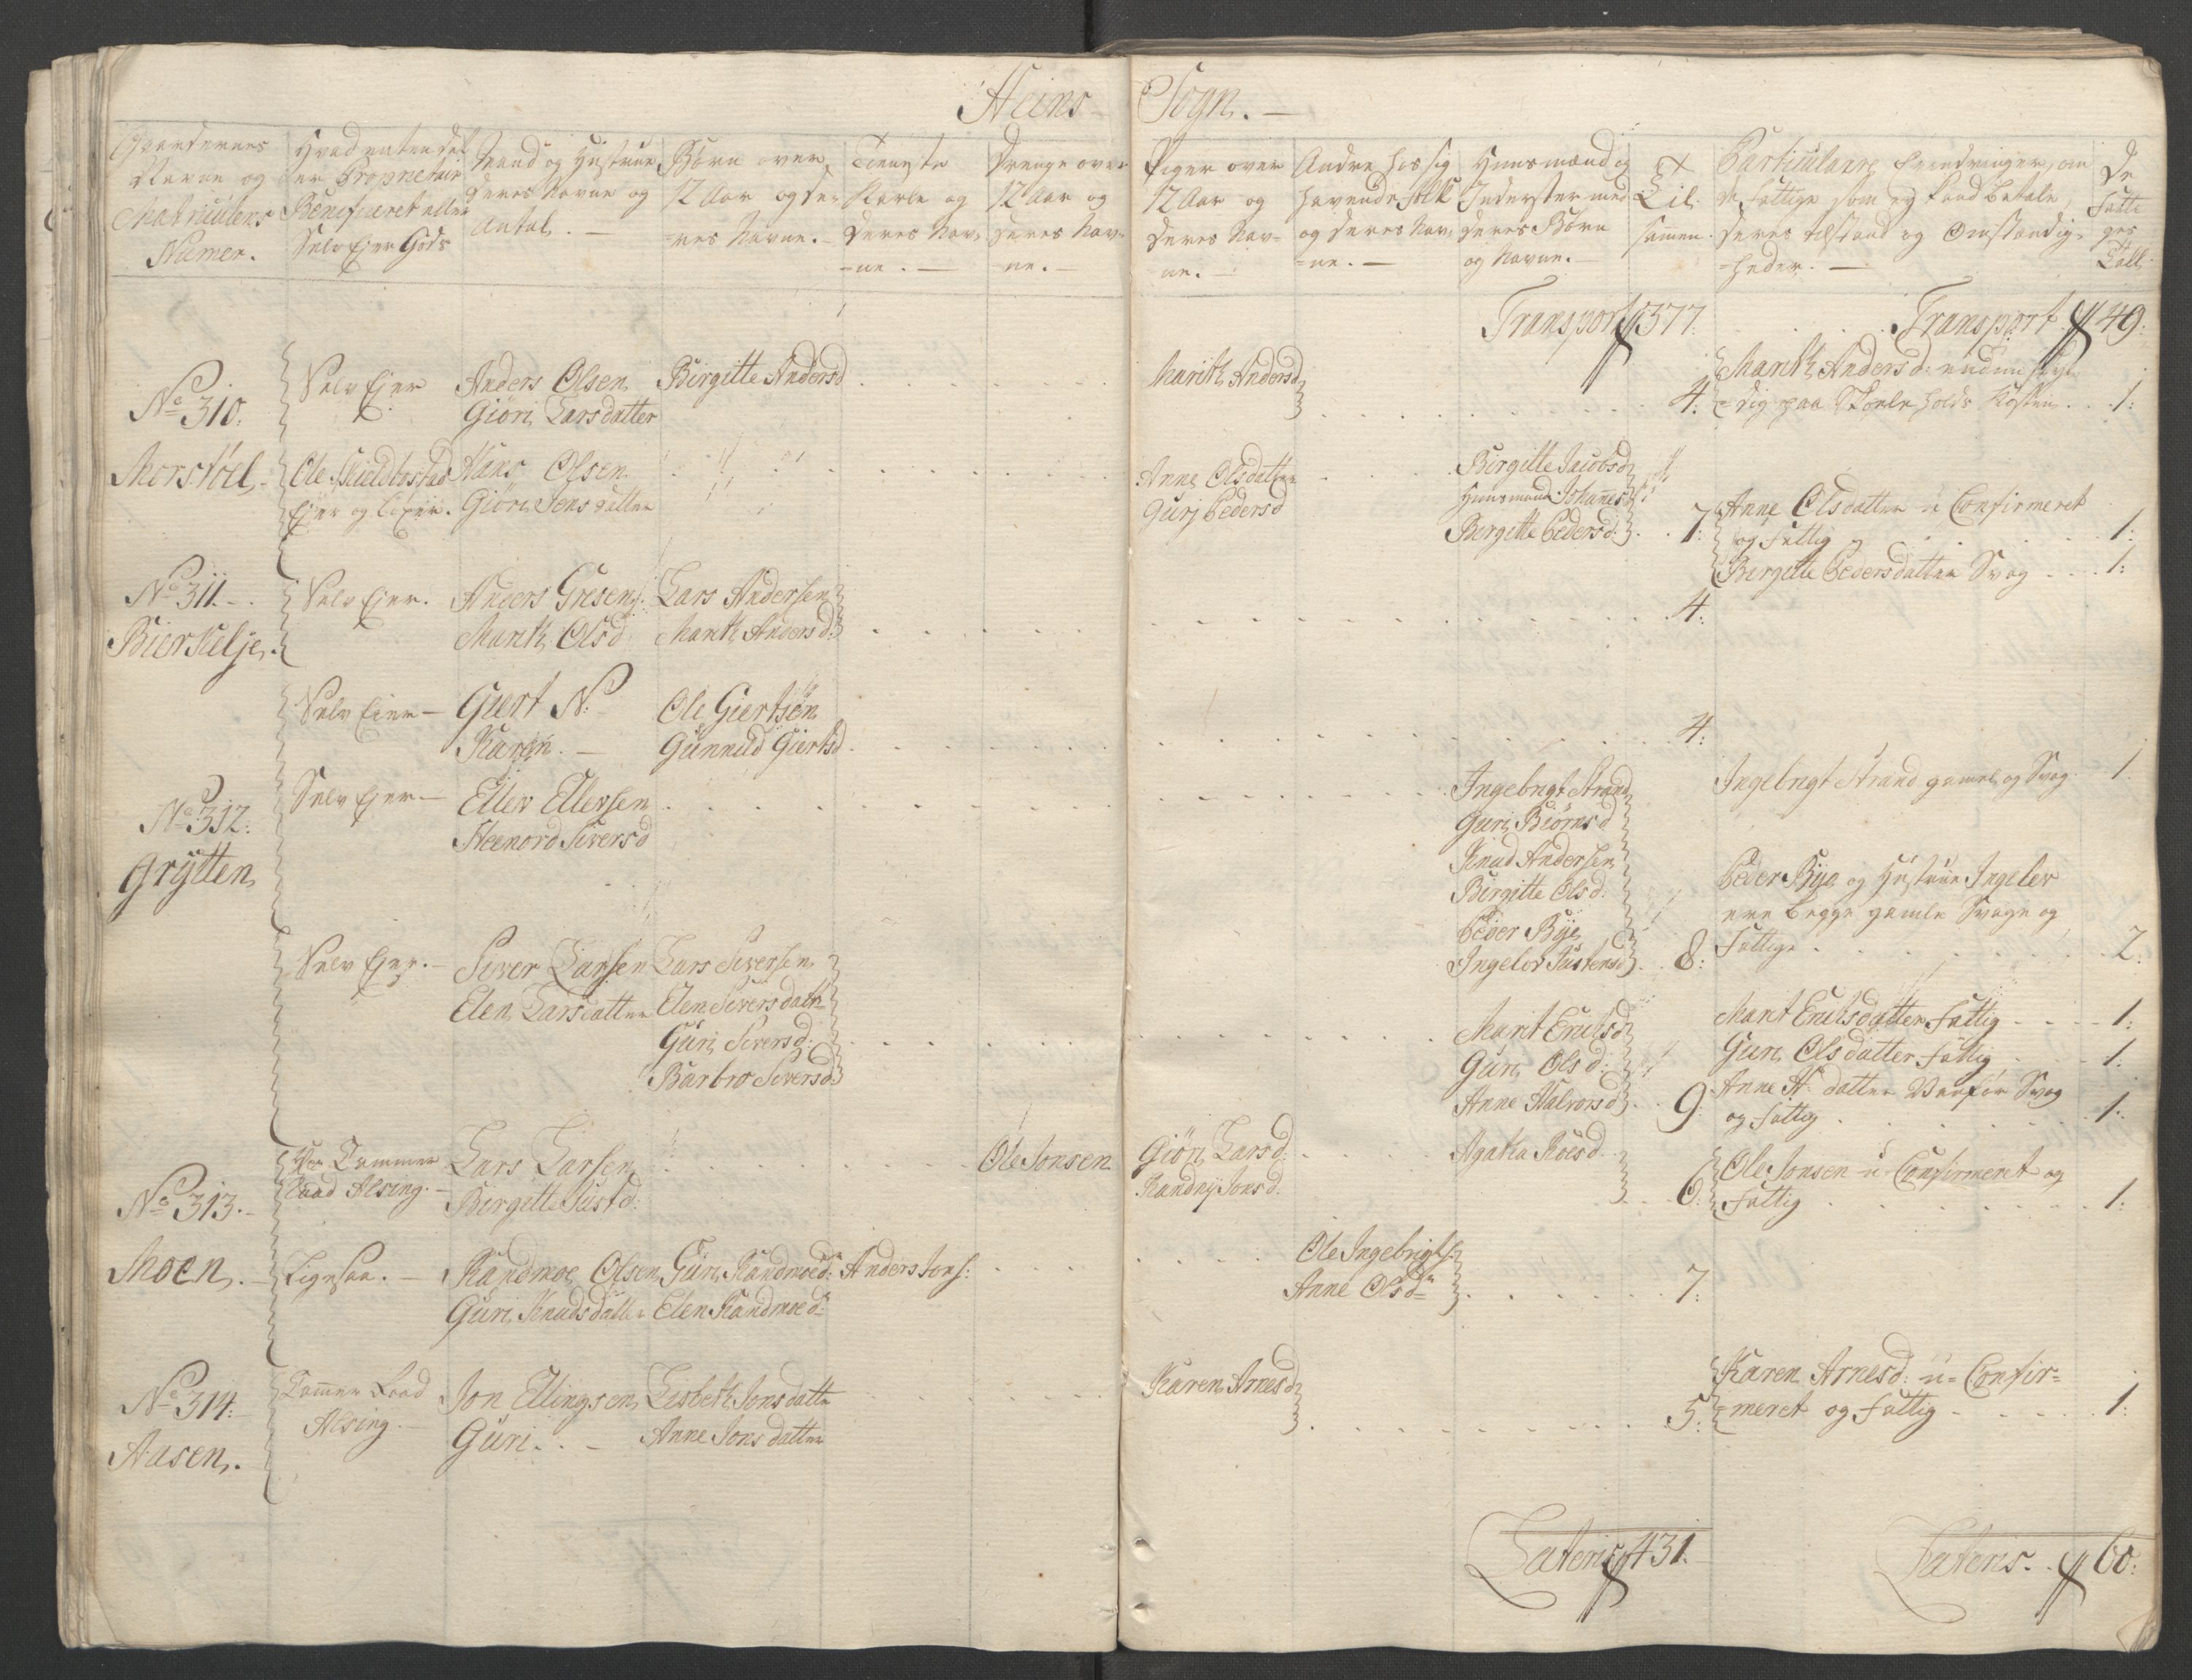 Heins Sogn. —
Gaardernes
Navne og
Matriculens
Numer.
Hvad enten det
er Proprietair
Beneficeret eller
Selv Ejer Gods
Mand og Hustrue
deres Navne og
Antal. —
Børn over
12 Aar og de=
=res Navne. —
Tieneste
Karle og
deres Nav=
=ne. —
Drenge over
12 Aar og
deres Nav=
=ne. —
Piger over
12 Aar og
deres Nav=
=ne. —
Andre hos sig
havende folk
og deres Nav=
=ne. —
Huusmænd og
Inderster med
deres Børn
og Navne. —
Til
sammen.
Particulaire Erindringer, om
de fattige som ej kand betale,
deres tilstand og Omstændig=
=heder. —
De
fatti
ges
Tall
Transport 377.
Transport 49:
No 310.
Selv Ejer
Anders Olsen
Giøri Larsdatter
Birgitte Andersd
Marith Andersd
4:
Marith Andersd:
=dig paa holds Kosten . . 1:
Morstøel.
Ole Skieldbostad
Ejer og
Hans Olsen
Giøri Jensdatter
Anne Olsdatter
Gurj Pedersd
Birgitte Jacobsd
Huusmand Johannes
Birgitte Pedersd: . . 7:
Anne Olsdatter u Confirmeret
og fattig . . . 1:
Birgitte Pedersdatter Svag . . . 1:
No 311. —
Bierkelje.
Selv Ejer.
Anders Gresen
Marith Olsd
Lars Andersen
Marith Andersd:
4:
Selv Ejer —
Giert N:
Karen. —
Ole Giertsøn
Gunnild Giertsd.
4:
No 312:
Grytten
Selv Ejer —
Eller Ellersen
Steenord Siversd
Ingebrigt Strand
Guri Biørnsd
Knud Andersen
Birgitte Olsd:
Peder Bye
Ingelev Justensd . . 8:
Ingebrigt Strand gamel og Svag 1
Peder Bye og Hustrue Ingelev
ere begge gamle Svage og
fattige . . . 2:
Selv Ejer. —
Siver Larsen
Elen Larsdatter
Lars Siversen
Elen Siversdattr
Guri Siversd:
Barbro Siversd:
Marit Erichsd
Guri Olsd:
Anne Halvorsd . . 9:
Marit Erichsdatter fattig - - - 1:
Guri Olsdatter fattig . . . 1:
Anne H: datter Vanfør Svag
og fattig . . . 1:
No 313. —
Moen. —
Tammer
Laad Alsing. —
Lars Larsen
Birgitte Justd:
Ole Jonsen
Giøri Larsd:
Randnij Jonsd:
Agatha Roesd.
6:
Ole Jonsen u Confirmeret og
fattig . . . 1:
Ligesaa. —
Randmoe Olsen
Guri Knudsdatter
Guri Randmoed:
Elen Randmoed:
Anders Jons:
Ole Ingebrigts:
Anne Olsd
7:
No 314:
Aasen.
Tammer Laad
Alsing. —
Jon Ellingsen
Guri. . —
Lisbeth Jonsdatter
Anne Jonsdatter
Karen Arnesd
5:
Karen Arnesd: u= Confir=
=meret og fattig - . . 1:
Lateris 431.
Lateris. . 60: